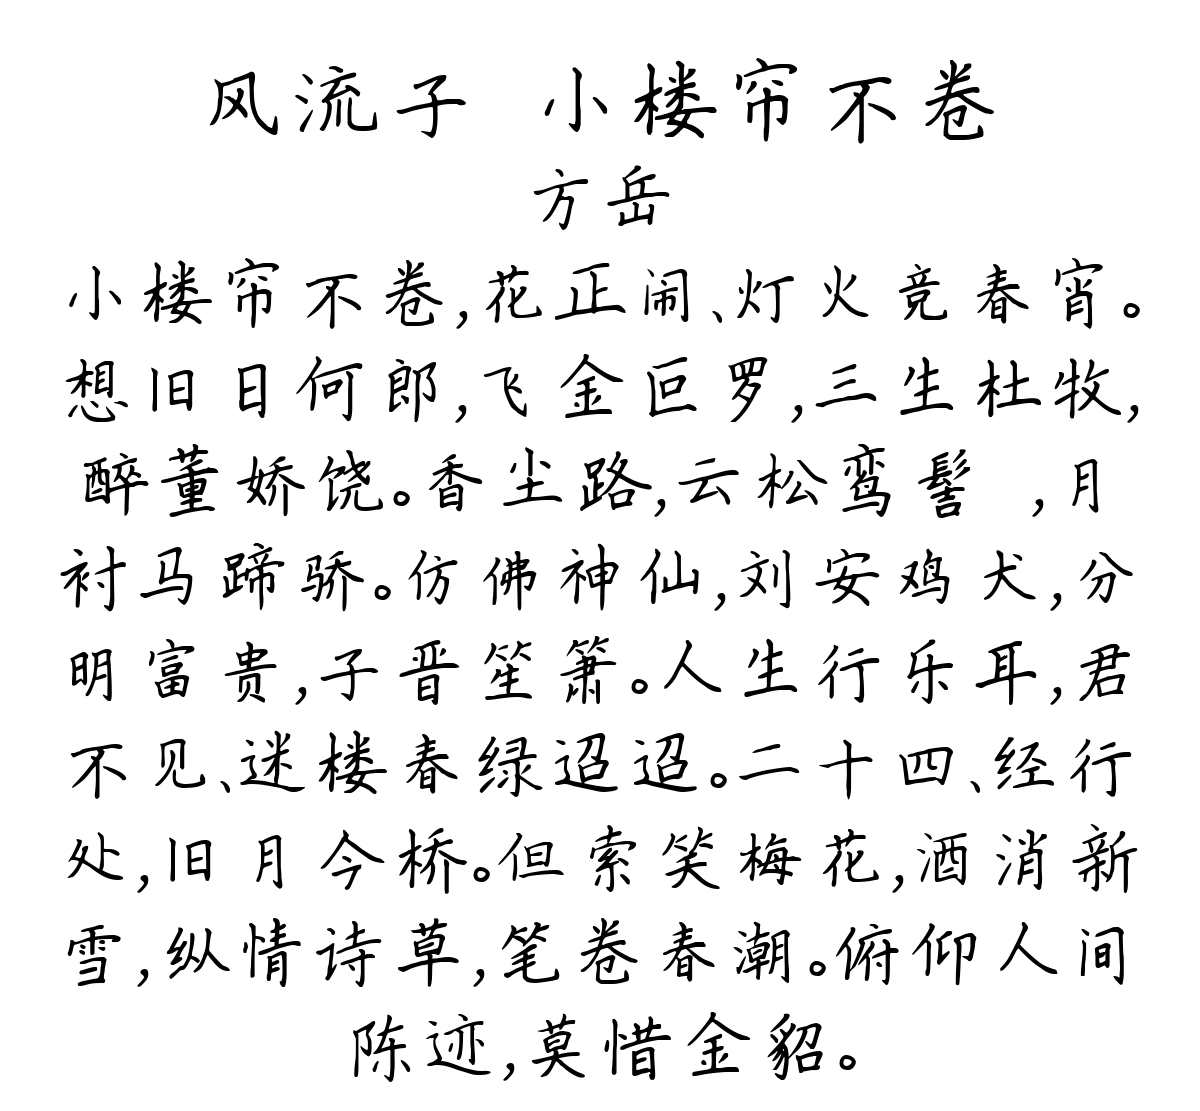 风流子 小楼帘不卷
方岳
小楼帘不卷,花正闹、灯火竞春宵。
想旧日何郎,飞金叵罗,三生杜牧,
醉董娇饶。香尘路,云松鸾髻 ,月
衬马蹄骄。仿佛神仙,刘安鸡犬,分
明富贵,子晋笙箫。人生行乐耳,君
不见、迷楼春绿迢迢。二十四、经行
处,旧月今桥。但索笑梅花,酒消新
雪,纵情诗草,笔卷春潮。俯仰人间
陈迹,莫惜金貂。